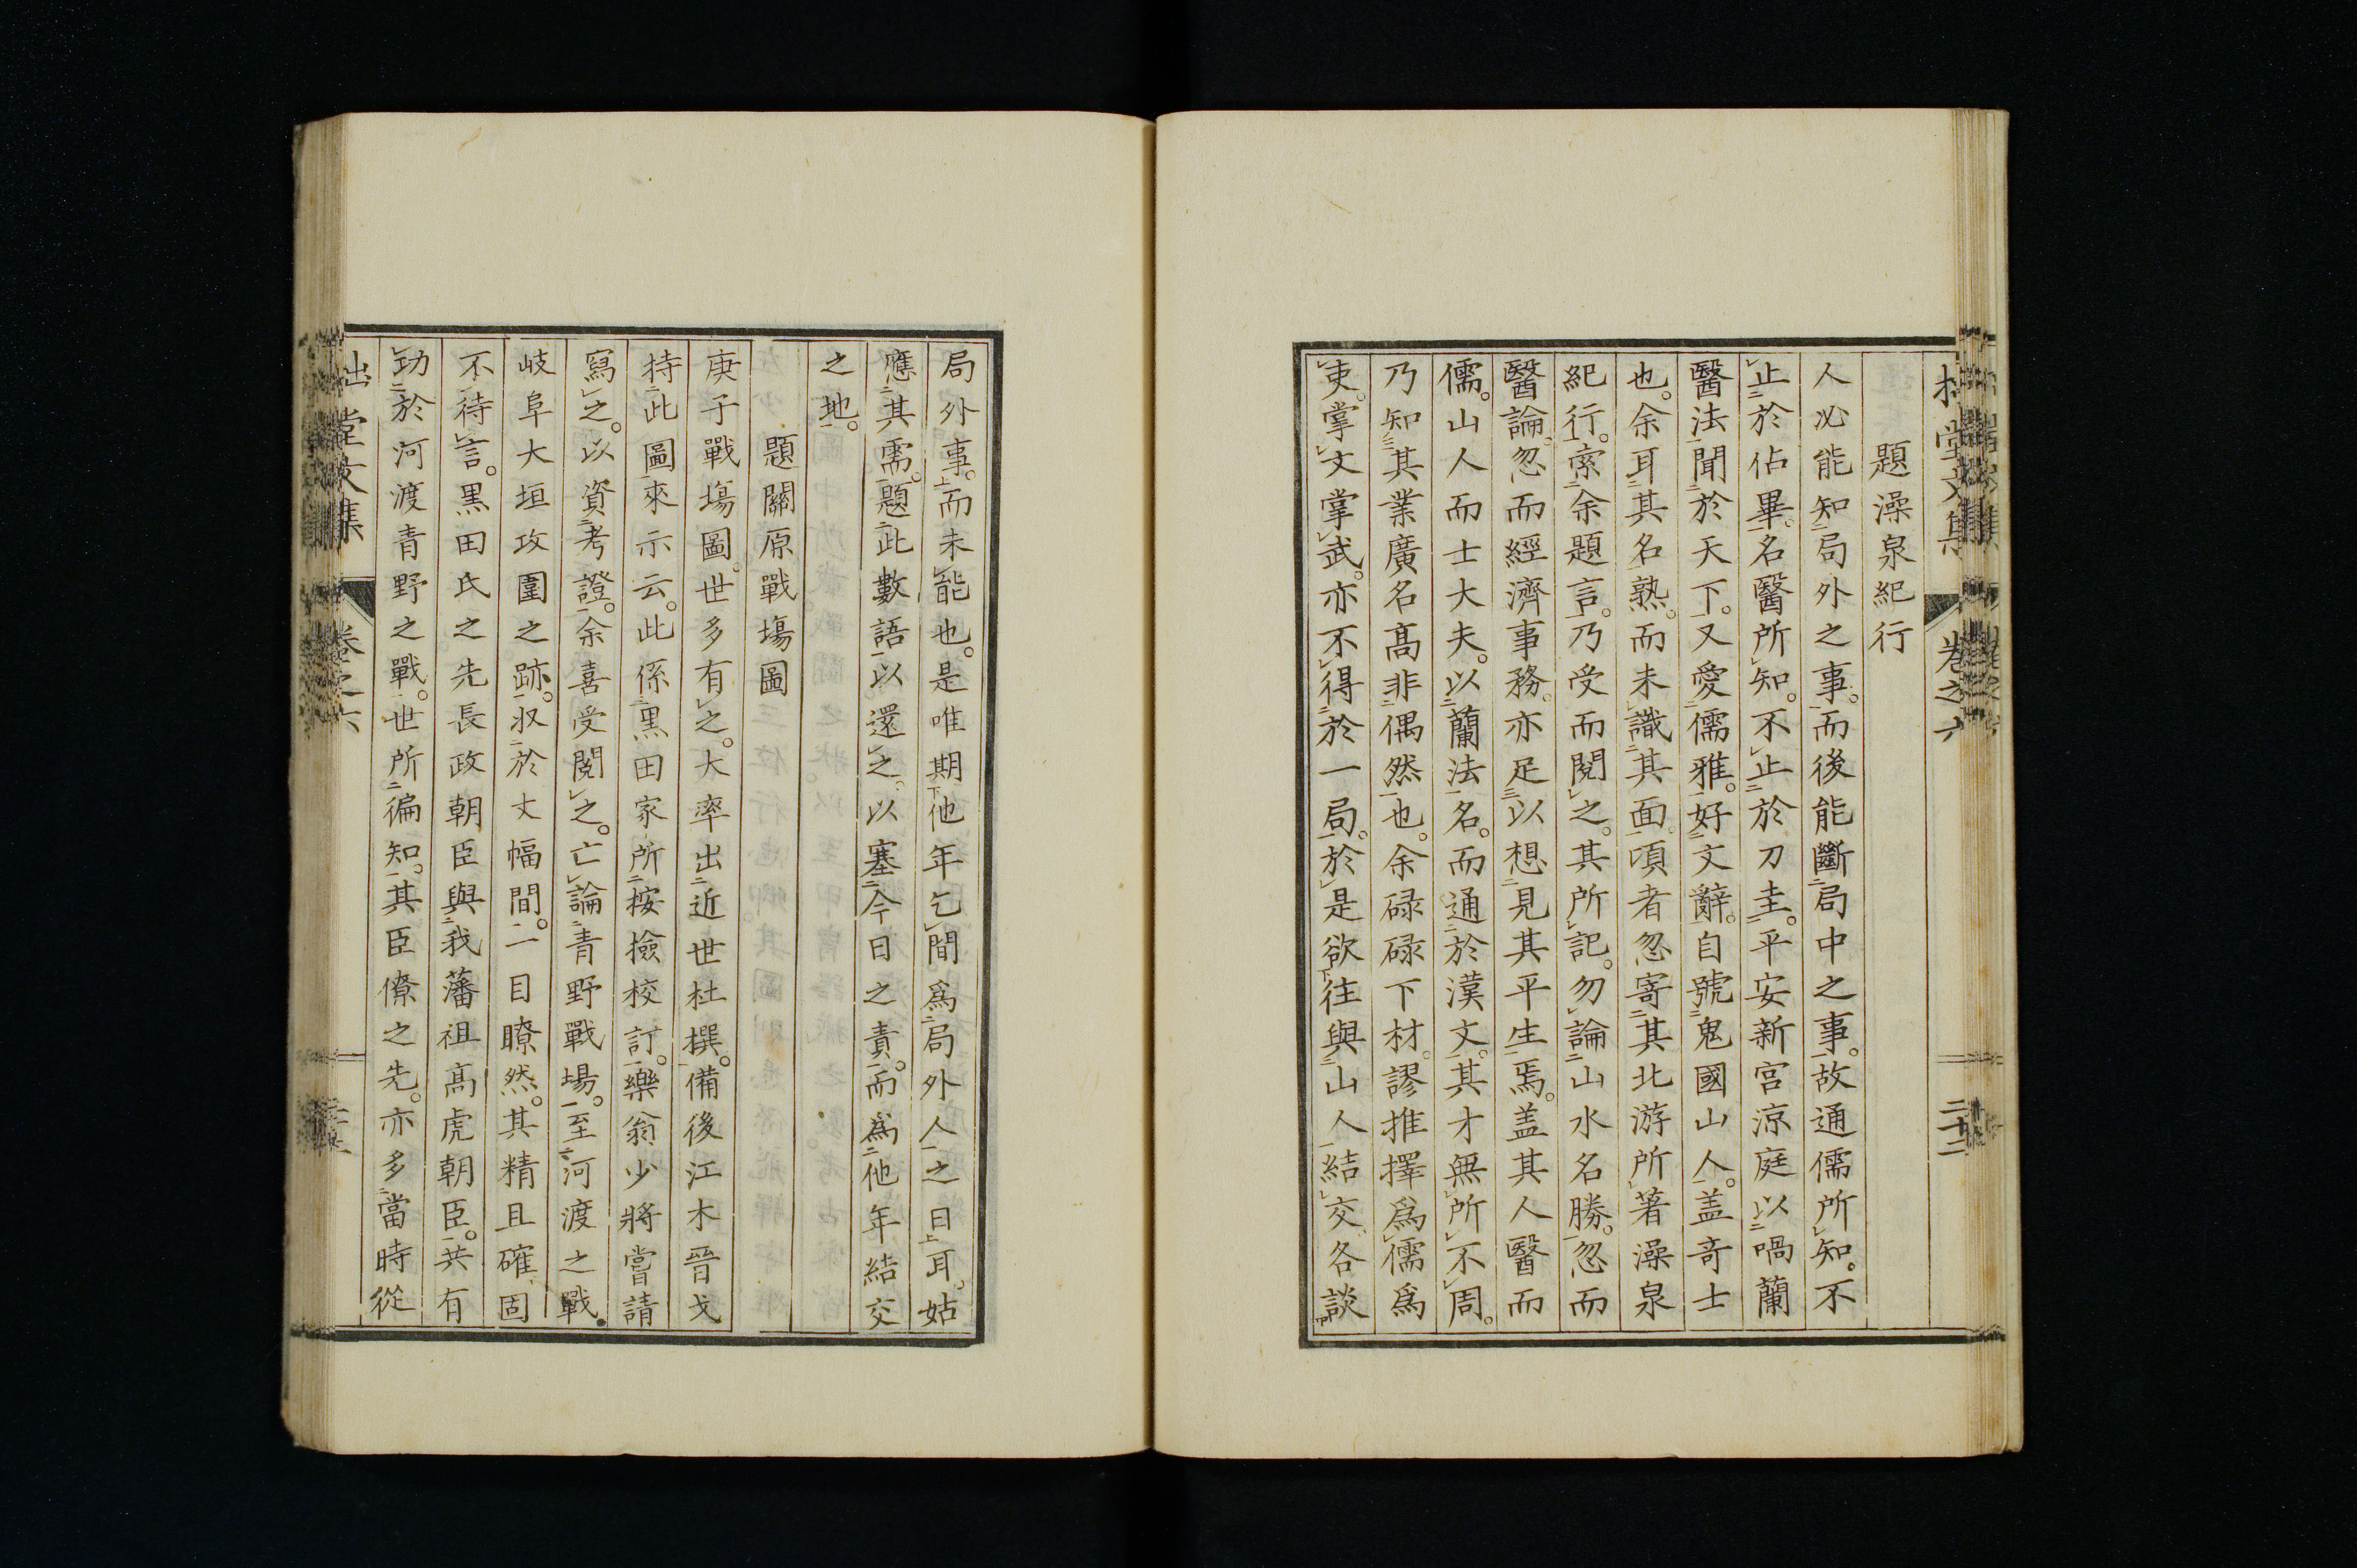 堂文集 卷之六 二十二
題澡泉紀行
人必能知局外之事。而後能斷局中之事。故通儒所知。不
止於佔畢。名醫所知。不止於刀圭。平安新宮涼庭以喎蘭
醫法聞於天下。又愛儒雅。好文辭。自號鬼國山人。盖奇士
也。余耳其名熟。而未識其面。項者忽寄其北游所著澡泉
紀行。索余題言。乃受而閱之。其所記。勿論山水名勝。忽而
醫論。忽而經濟事務。亦足以想見其平生焉。盖其人醫而
儒。山人而士大夫。以蘭法名。而通於漢文。其才無所不周。
乃知其業廣名高非偶然也。余碌碌下材。謬推擇爲儒爲
吏。掌文掌武。亦不得於一局。於是欲往與山人結交。各談
局外事。而未能也。是唯期他年乞間爲局外人之日耳。姑
應其需。題此數語以還之。以塞今日之責。而爲他年結交
之地。
題關原戰塲圖
庚子戰塲圖。世多有之。大率出近世杜撰。備後江木晉戈
持此圖來示云。此係黑田家所按撿校訂。樂翁少將嘗請
寫之。以資考證。余喜受閱之。亡論青野戰場。至河渡之戰。
岐阜大垣攻圍之跡。収於丈幅間。一目瞭然。其精且確。固
不待言。黒田氏之先長政朝臣與我藩祖高虎朝臣。共有
功於河渡青野之戰。世所徧知。其臣僚之先。亦多當時從
堂文集 卷之六